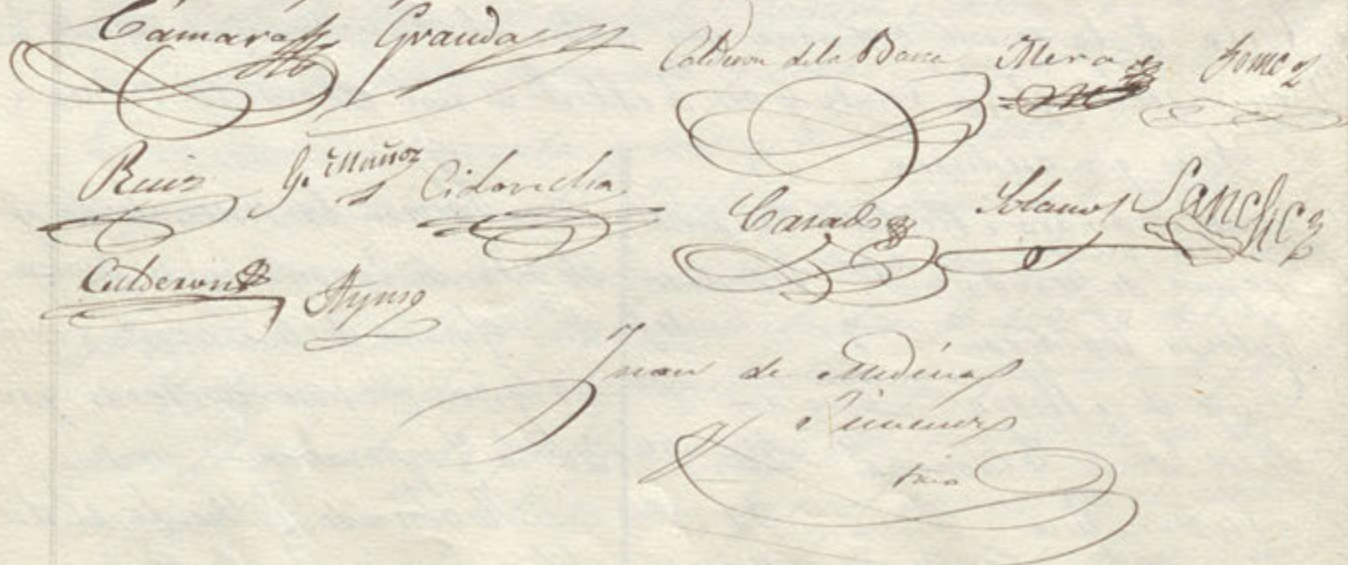 Cámara Granda Calderon de la Barca Mera Gomez
Ruiz G. Muñoz Casado Solano Sanchez
Calderon Ayuso
Juan de Medina
Jimenez